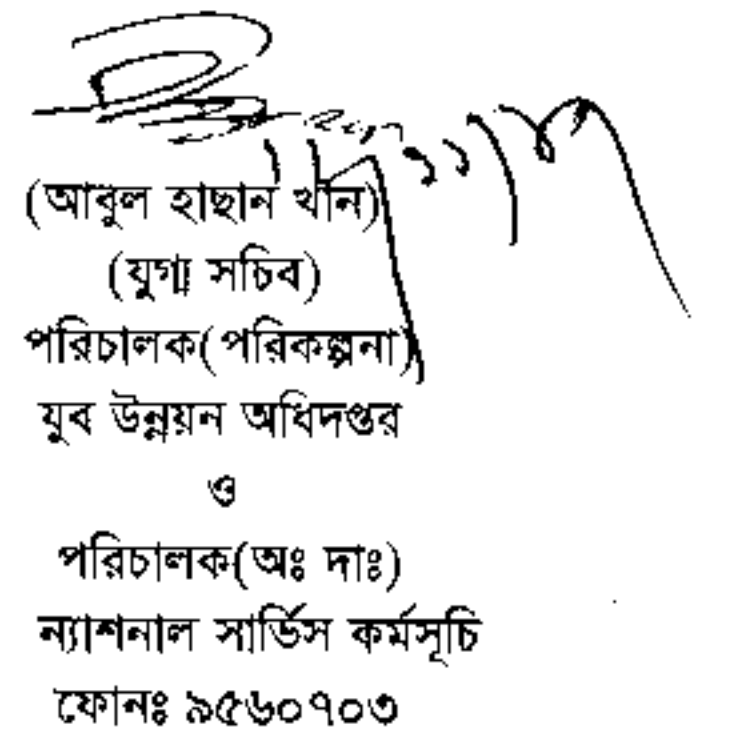 (আবুল হাছান খাঁন)
(যুগ্ম সচিব)
পরিচালক(পরিকল্পনা)
যুব উন্নয়ন অধিদপ্তর
ও
পরিচালক(অঃ দাঃ)
ন্যাশনাল সার্ভিস কর্মসূচি
ফোনঃ ৯৫৬০৭০৩